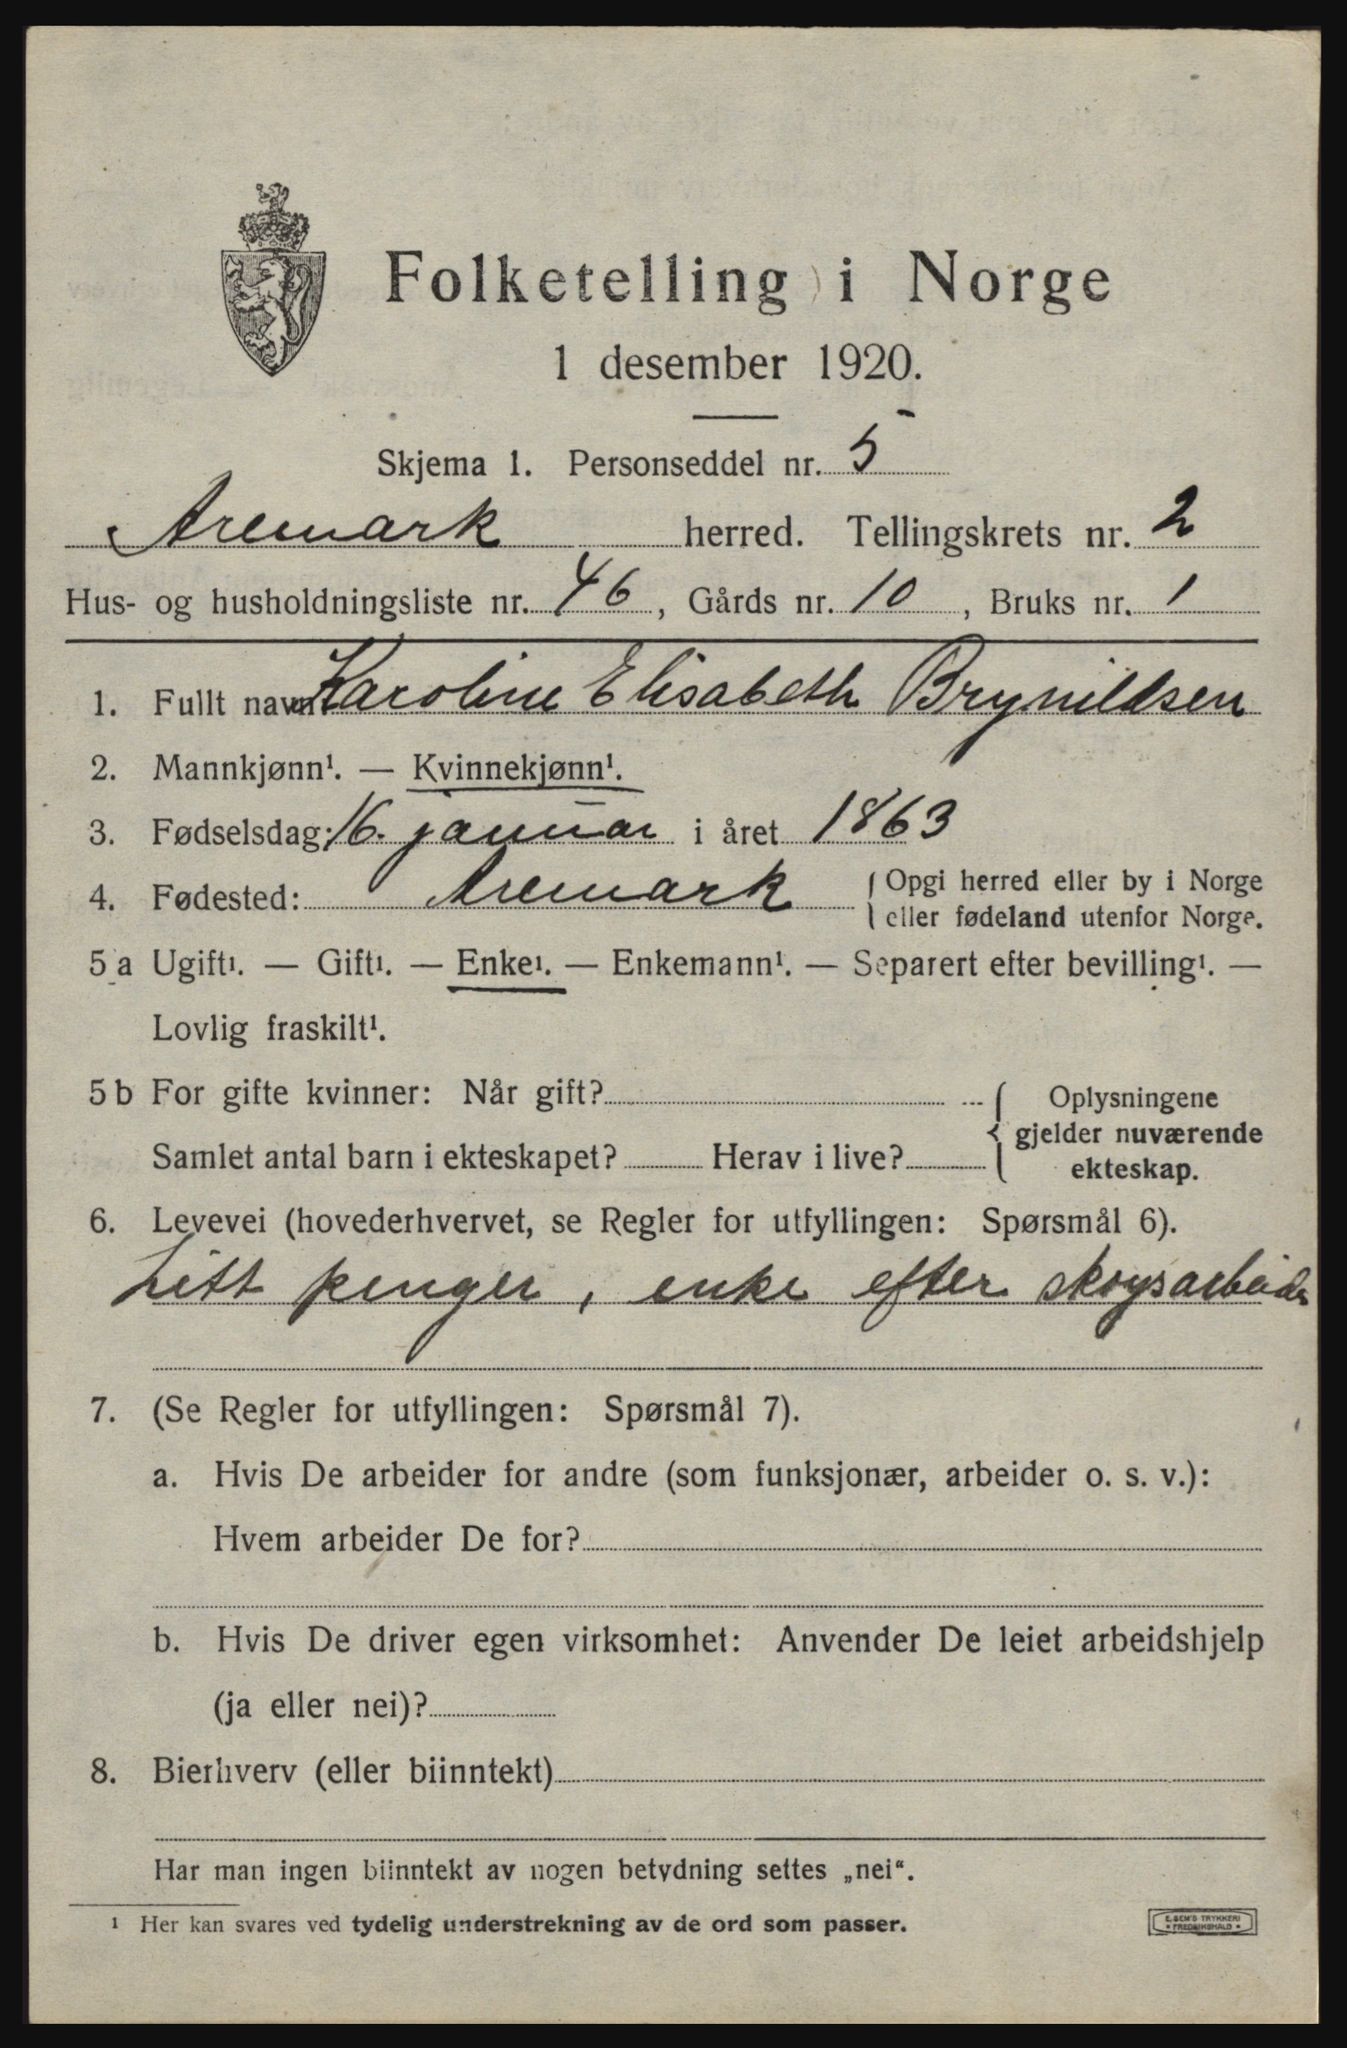 Folketelling i Norge
1 desember 1920.
Skjema 1. Personseddel nr. 5
Aremark herred. Tellingskrets nr. 2
Hus- og husholdningsliste nr. 46, Gårds nr. 10, Bruks nr. 1
1. Fullt navn: Karoline Elisabeth Brynildsen
2. Mannkjønn¹. — Kvinnekjønn¹.
3. Fødselsdag: 16. januar i året 1863
4. Fødested: Aremark { Opgi herred eller by i Norge
eller fødeland utenfor Norge.
5 a Ugift¹. — Gift¹. — Enke¹. — Enkemann¹. — Separert efter bevilling¹. —
Lovlig fraskilt¹.
5 b For gifte kvinner: Når gift? Oplysningene
gjelder nuværende
Samlet antal barn i ekteskapet? Herav i live?
ekteskap.
6. Levevei (hovederhvervet, se Regler for utfyllingen: Spørsmål 6).
Litt penger, enke efter skogsarbeider
7. (Se Regler for utfyllingen: Spørsmål 7).
a. Hvis De arbeider for andre (som funksjonær, arbeider o. s. v.):
Hvem arbeider De for?
b. Hvis De driver egen virksomhet: Anvender De leiet arbeidshjelp
(ja eller nei)?
8. Bierhverv (eller biinntekt)
Har man ingen biinntekt av nogen betydning settes „nei“.
¹ Her kan svares ved tydelig understrekning av de ord som passer.
E. SEM'S TRYKKERI
• FREDRIKSHALD •